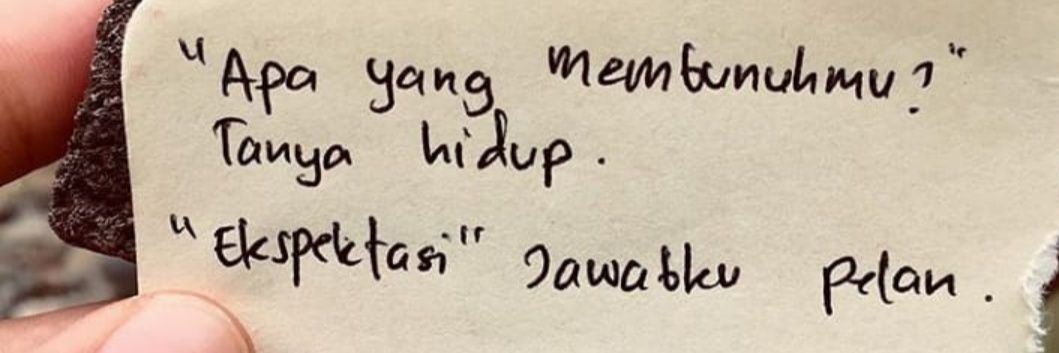 "Apa yang membunuhmu?"
Tanya hidup.
"Ekspektasi" Jawabku pelan.